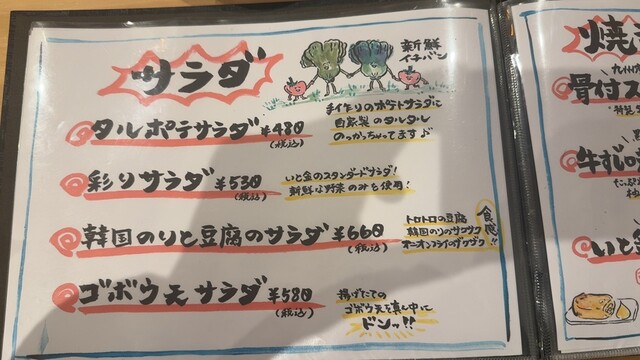 サラダ
新鮮
イチバン
タルポテサラダ ¥480
(税込)
手作りのポテトサラダに
自家製のタルタル
のっかっちゃってます♪
彩りサラダ ¥530
(税込)
いと金のスタンダードサラダ!
新鮮な野菜のみを使用!
韓国のりと豆腐のサラダ ¥660
(税込)
トロトロの豆腐
韓国のりのサクサク
オニオンフライのザクザク
食感!!
ゴボウ天サラダ ¥580
(税込)
揚げたての
ゴボウ天を真ん中に
ドンッ!!
焼き
九州
骨付ス
牛すじの
いと金